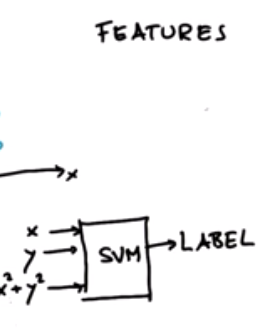 FEATURES
x
x
y
x²+y²
SVM
LABEL